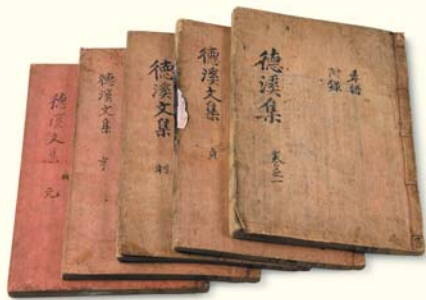 德溪文集 元
德溪文集 亨
德溪文集 利
德溪文集 貞
德溪集 卷之一
年譜
附錄